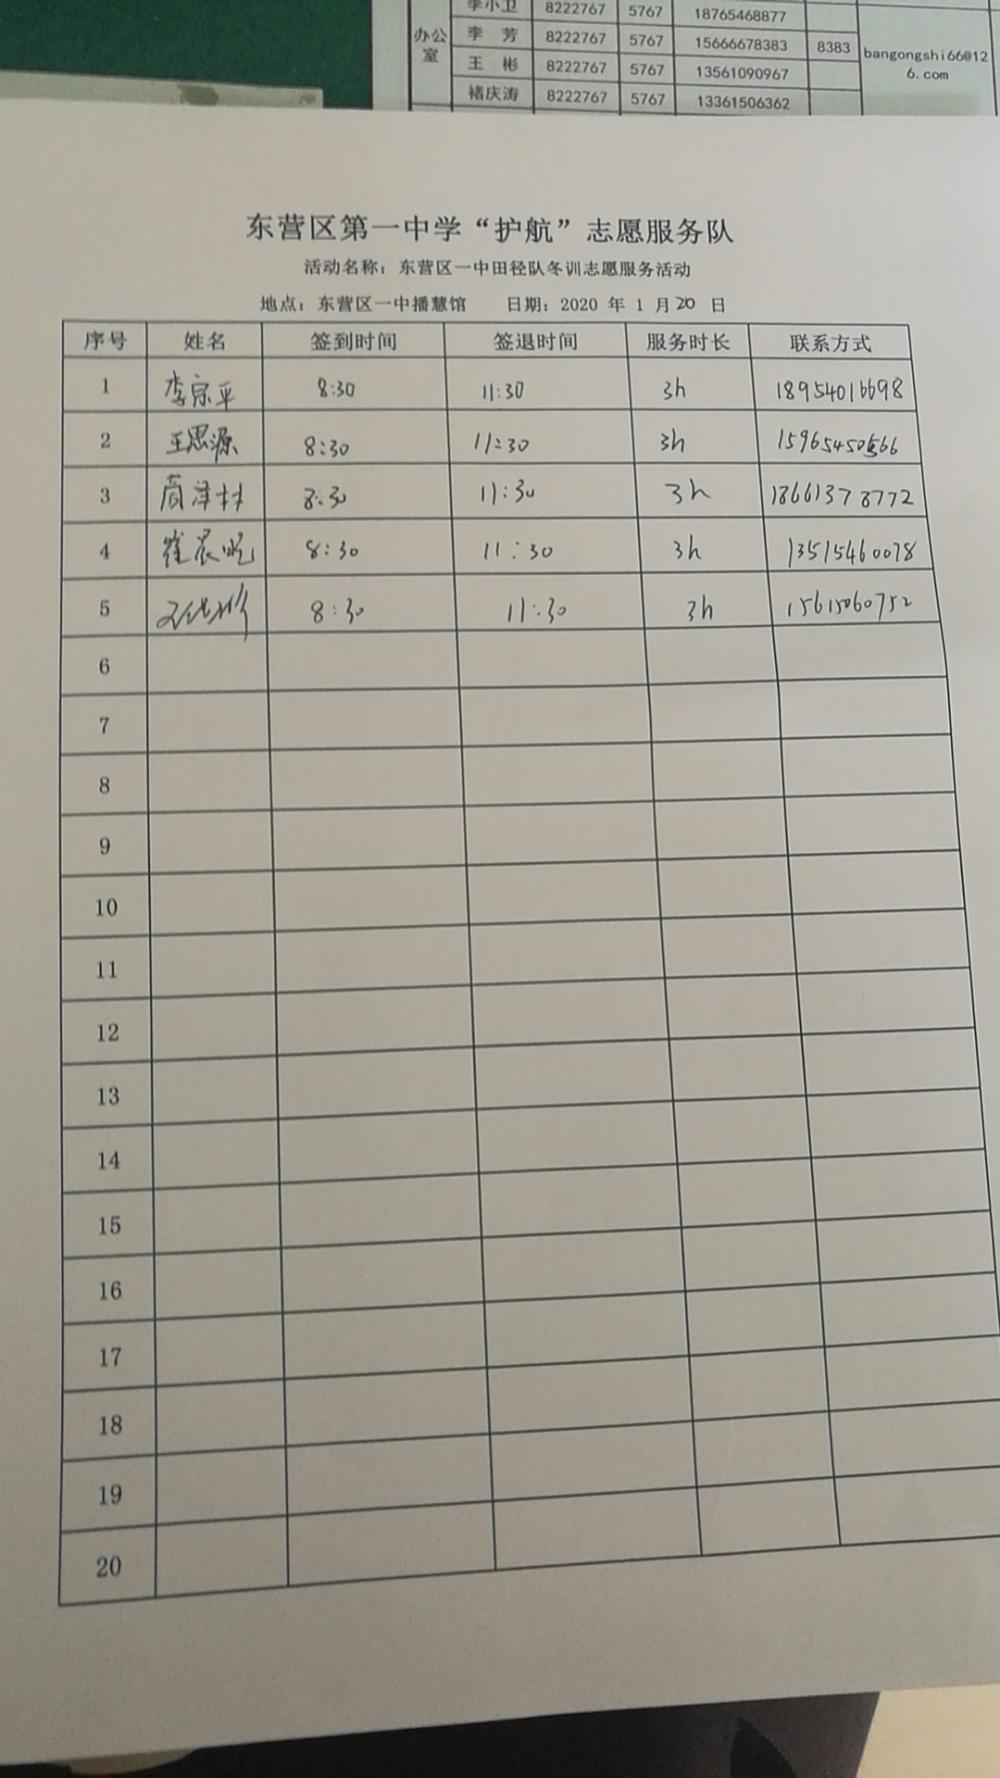 李小卫 8222767 5767 18765468877
办公室 李 芳 8222767 5767 15666678383 8383 bangongshi66@126.com
王 彬 8222767 5767 13561090967
褚庆涛 8222767 5767 13361506362
东营区第一中学“护航”志愿服务队
活动名称：东营区一中田径队冬训志愿服务活动
地点：东营区一中播慧馆 日期：2020 年 1 月 20 日
序号 姓名 签到时间 签退时间 服务时长 联系方式
1 李宗平 8:30 11:30 3h 18954016698
2 王思源 8:30 11:30 3h 15965450566
3 8:30 11:30 3h 18661378772
4 崔晨 8:30 11:30 3h 13515460078
5 8:30 11:30 3h 15615060752
6
7
8
9
10
11
12
13
14
15
16
17
18
19
20